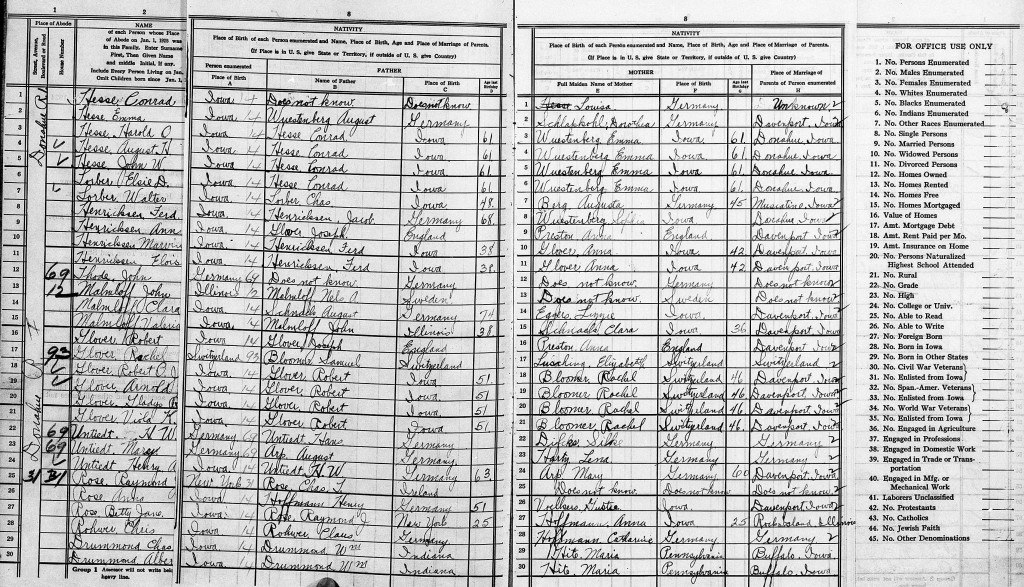 1 2 8 8
Place of Abode NAME NATIVITY NATIVITY
of each Person whose Place of Abode on Jan. 1, 1925 was in this Family. Enter Surname First, Then Given Name and middle Initial, if any. Include Every Person Living on Jan. Omit Children born since Jan. 1,
Place of Birth of each Person enumerated and Name, Place of Birth, Age and Place of Marriage of Parents.
(If Place is in U. S. give State or Territory, if outside of U. S. give Country)
Street, Avenue, Boulevard or Road House Number
Person enumerated FATHER MOTHER
Place of Birth A Name of Father B Place of Birth C Age last Birthday D Full Maiden Name of Mother E Place of Birth F Age last Birthday G Place of Marriage of Parents of Person enumerated H
1 Hesse Conrad Iowa 14 Does not know Does not know 1 Hesse Louisa Germany Unknown 2
2 Hesse Emma Iowa 14 Wuestenberg August Germany 2 Schlapkohl, Dorothea Germany Davenport, Iowa
3 Hesse, Harold O. Iowa 14 Hesse Conrad Iowa 61 3 Wuestenberg Emma Iowa 61 Donahue, Iowa
4 Hesse, August H Iowa 14 Hesse Conrad Iowa 61 4 Wuestenberg Emma Iowa 61 Donahue, Iowa
5 Hesse John W. Iowa 14 Hesse Conrad Iowa 61 5 Wuestenberg Emma Iowa 61 Donahue, Iowa
6 Elsie D. Iowa 14 Hesse Conrad Iowa 61 6 Wuestenberg Emma Iowa 61 Donahue, Iowa
7 Walter Iowa 14 Chas Iowa 48 7 Berg, Augusta Germany 45 Muscatine, Iowa
8 Henricksen Ferd Iowa 14 Henricksen Jacob Germany 68 8 Wuestenberg Sophia Iowa Donahue Iowa
9 Henricksen Anna Iowa 14 Glover Joseph England 9 Preston Anna England Davenport Iowa
10 Henricksen Marvin Iowa 14 Henricksen Ferd Iowa 38 10 Glover, Anna Iowa 42 Davenport, Iowa
11 Henricksen Flois Iowa 14 Henricksen Ferd Iowa 38 11 Glover Anna Iowa 42 Davenport, Iowa
12 69 Thode John Germany 69 Does not know Germany 12 Does not know Germany Does not know
13 12 Malmloff John Illinois 12 Malmloff Nels A. Sweden 13 Does not know Sweden Does not know
14 Malmloff Clara Iowa 14 Schnack August Germany 74 14 Eggers Lizzie Iowa Davenport, Iowa
15 Malmloff Valeria Iowa 14 Malmloff John Illinois 38 15 Schnack Clara Iowa 36 Davenport, Iowa
16 Glover Robert Iowa 14 Glover Joseph England 16 Preston Anna England Davenport Iowa
17 93 Glover Rachel Switzerland 93 Bloomer Samuel Switzerland 17 Elizabeth Switzerland Switzerland 2
18 Glover Robert O. J. Iowa 14 Glover Robert Iowa 51 18 Bloomer Rachel Switzerland 46 Davenport, Iowa
19 Glover Arnold Iowa 14 Glover, Robert Iowa 51 19 Bloomer Rachel Switzerland 46 Davenport Iowa
20 Glover Gladys R Iowa 14 Glover, Robert Iowa 51 20 Bloomer Rachel Switzerland 46 Davenport, Iowa
21 Glover K. Iowa 14 Glover Robert Iowa 51 21 Bloomer, Rachel Switzerland 46 Davenport, Iowa
22 69 Untiedt H W. Germany 69 Untiedt Hans Germany 22 Germany Germany 2
23 69 Untiedt Mary Germany 69 Arp August Germany 23 Lena Germany Germany 2
24 Untiedt Henry A Iowa 14 Untiedt H W Germany 63 24 Arp Mary Germany 60 Davenport, Iowa
25 31 31 Rose, Raymond New York 31 Rose Chas. T Ireland 25 Does not know Does not know Does not know 2
26 Rose Anna Iowa 14 Hoffmann Henry Germany 51 26 Iowa Davenport Iowa
27 Rose Betty Jane Iowa 14 Rose, Raymond J. New York 25 27 Hoffmann, Anna Iowa 25 Rock Island, Illinois
28 Rohwer Chris Iowa 14 Rohwer Claus Germany 28 Hoffmann, Catharine Germany Germany 2
29 Drummond Chas Iowa 14 Drummond Wm Indiana 29 Hite Maria Pennsylvania Buffalo, Iowa
30 Drummond Alber Iowa 14 Drummond Wm Indiana 30 Hite, Maria Pennsylvania Buffalo, Iowa
Donahue R 1
Donahue
Group 1 Assessor will not write below heavy line.
FOR OFFICE USE ONLY
1. No. Persons Enumerated
2. No. Males Enumerated
3. No. Females Enumerated
4. No. Whites Enumerated
5. No. Blacks Enumerated
6. No. Indians Enumerated
7. No. Other Races Enumerated
8. No. Single Persons
9. No. Married Persons
10. No. Widowed Persons
11. No. Divorced Persons
12. No. Homes Owned
13. No. Homes Rented
14. No. Homes Free
15. No. Homes Mortgaged
16. Value of Homes
17. Amt. Mortgage Debt
18. Amt. Rent Paid per Mo.
19. Amt. Insurance on Home
20. No. Persons Naturalized
Highest School Attended
21. No. Rural
22. No. Grade
23. No. High
24. No. College or Univ.
25. No. Able to Read
26. No. Able to Write
27. No. Foreign Born
28. No. Born in Iowa
29. No. Born in Other States
30. No. Civil War Veterans
31. No. Enlisted from Iowa
32. No. Span.-Amer. Veterans
33. No. Enlisted from Iowa
34. No. World War Veterans
35. No. Enlisted from Iowa
36. No. Engaged in Agriculture
37. Engaged in Professions
38. Engaged in Domestic Work
39. Engaged in Trade or Trans-
portation
40. Engaged in Mfg. or
Mechanical Work
41. Laborers Unclassified
42. No. Protestants
43. No. Catholics
44. No. Jewish Faith
45. No. Other Denominations